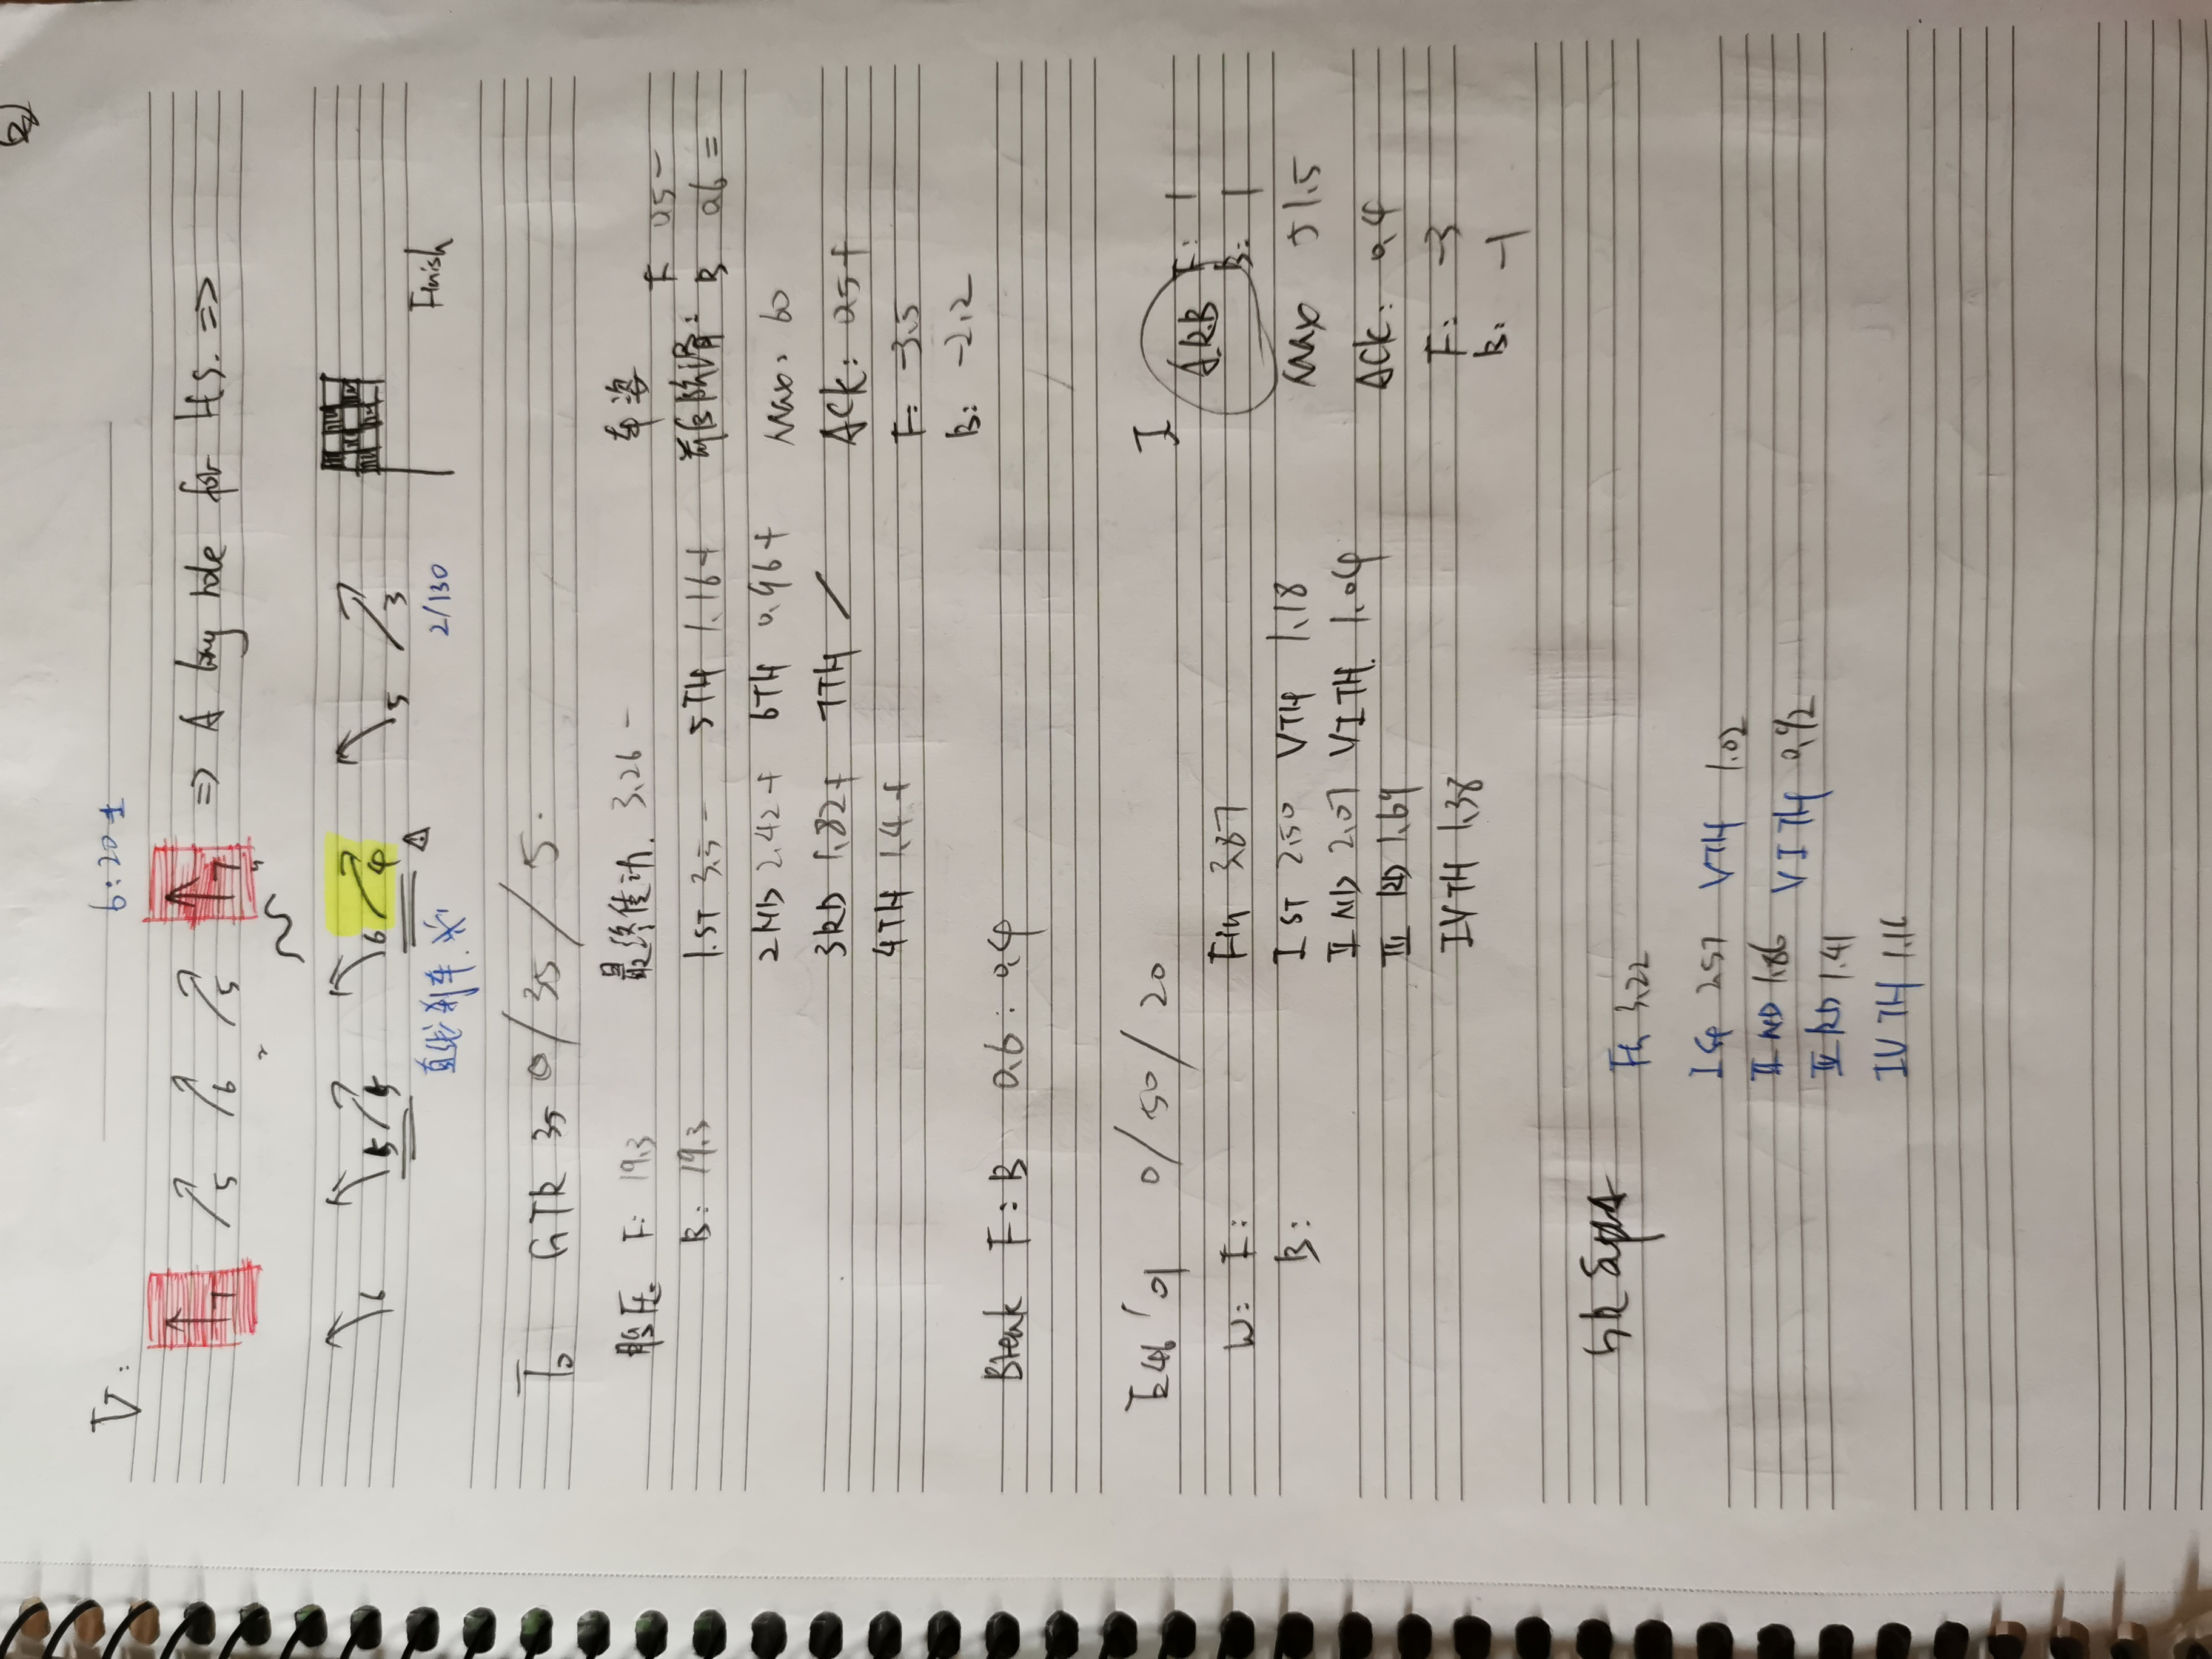 ②
V:
6:20±
↑7 ↗5 ↗6 ↗5 ↑7 ⇒ A way hole for HS. ⇒
↖6 ↖5 ↗5 ↖6 ↗4 ↖5 ↗3
直线刹车. 2/130 Finish
To GTR 35 0/35/5.
胎压 F: 19.3 最终传动. 3.26 - 车姿
B: 19.3 1.ST 3.5 - 5TH 1.16 + F 0.5 -
B 0.6 =
2ND 2.42 + 6TH 0.96 + Max: 60
3RD 1.82 + 7TH / ACK: 0.5 +
4TH 1.4 + F: -3.5
B: -2.2
Break F:B 0.6:0.4
'01 0/50/20 I
W: F: Fin 3.87 ARB F: 1
B: B: 1
I ST 2.50 VTH 1.18 Max 51.5
II ND 2.07 VITH. 1.04
III RD 1.69 ACK: 0.4
IVTH 1.38 F: -3
B: -1
Fin 3.22
I ST 2.57 VTH 1.02
II ND 1.86 VI TH 0.92
III RD 1.41
IV TH 1.16